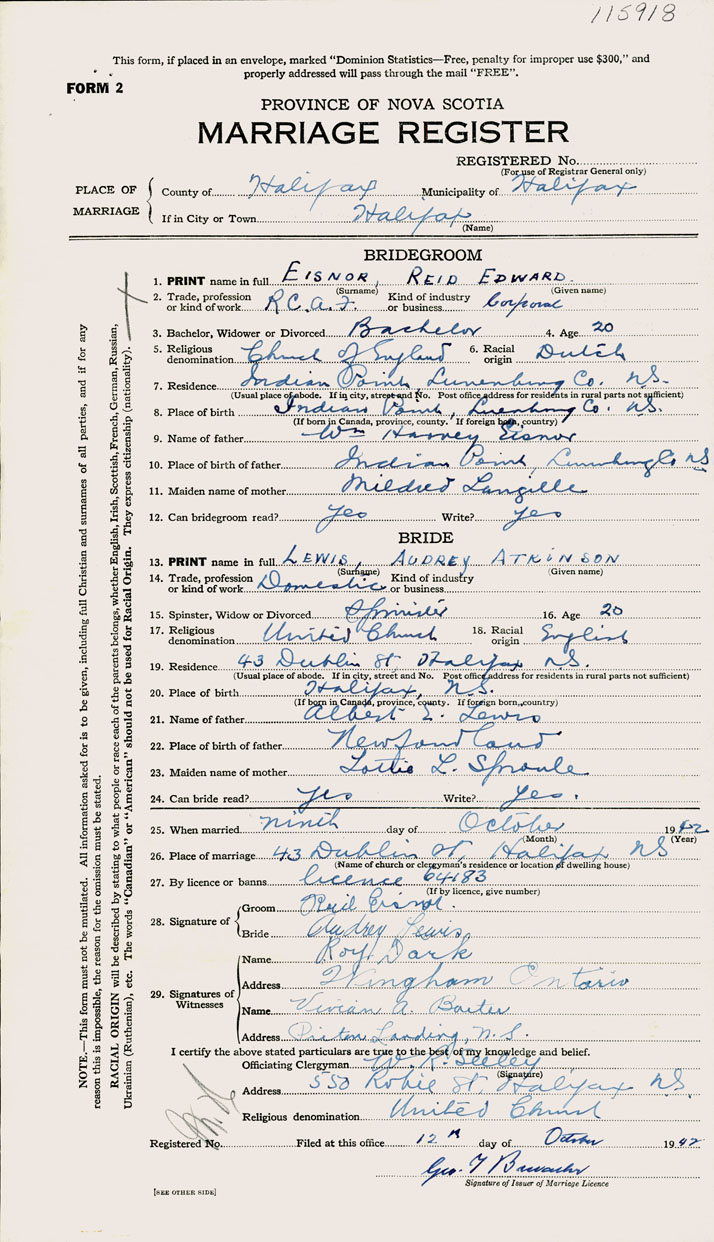 115918
This form, if placed in an envelope, marked "Dominion Statistics—Free, penalty for improper use $300," and
properly addressed will pass through the mail "FREE".
FORM 2
PROVINCE OF NOVA SCOTIA
MARRIAGE REGISTER
REGISTERED No.
(For use of Registrar General only)
PLACE OF MARRIAGE
County of Halifax Municipality of Halifax
If in City or Town Halifax
(Name)
BRIDEGROOM
1. PRINT name in full EISNOR, REID EDWARD.
(Surname) (Given name)
2. Trade, profession or kind of work R.C.A.F. Kind of industry or business Corporal
3. Bachelor, Widower or Divorced Bachelor 4. Age 20
5. Religious denomination Church of England 6. Racial origin Dutch
7. Residence Indian Point, Lunenburg Co. N.S.
(Usual place of abode. If in city, street and No. Post office address for residents in rural parts not sufficient)
8. Place of birth Indian Point, Luenburg Co. N.S.
(If born in Canada, province, county. If foreign born, country)
9. Name of father Wm Harvey Eisnor
10. Place of birth of father Indian Point, Lunenburg Co NS
11. Maiden name of mother Mildred Langille
12. Can bridegroom read? yes Write? yes
BRIDE
13. PRINT name in full LEWIS, AUDREY ATKINSON
(Surname) (Given name)
14. Trade, profession or kind of work Domestic Kind of industry or business
15. Spinster, Widow or Divorced Spinster 16. Age 20
17. Religious denomination United Church 18. Racial origin English
19. Residence 43 Dublin St. Halifax N.S.
(Usual place of abode. If in city, street and No. Post office address for residents in rural parts not sufficient)
20. Place of birth Halifax, N.S.
(If born in Canada, province, county. If foreign born, country)
21. Name of father Albert E. Lewis
22. Place of birth of father Newfoundland
23. Maiden name of mother Lottie L. Sproule
24. Can bride read? yes Write? yes.
25. When married ninth day of October 1942
(Month) (Year)
26. Place of marriage 43 Dublin St, Halifax NS
(Name of church or clergyman's residence or location of dwelling house)
27. By licence or banns licence 64183
(If by licence, give number)
28. Signature of
Groom Reid Eisnor.
Bride Audrey Lewis
29. Signatures of Witnesses
Name Roy Dark
Address Wingham Ontario
Name Vivian A. Baxter
Address Pictou Landing, N.S.
I certify the above stated particulars are true to the best of my knowledge and belief.
Officiating Clergyman W. R. Seeley
(Signature)
Address 550 Robie St, Halifax N.S.
Religious denomination United Church
Registered No. Filed at this office 12th day of October 1942
Geo. T
Signature of Issuer of Marriage Licence
[SEE OTHER SIDE]
NOTE.—This form must not be mutilated. All information asked for is to be given, including full Christian and surnames of all parties, and if for any
reason this is impossible, the reason for the omission must be stated.
RACIAL ORIGIN will be described by stating to what people or race each of the parents belongs, whether English, Irish, Scottish, French, German, Russian,
Ukrainian (Ruthenian), etc. The words "Canadian" or "American" should not be used for Racial Origin. They express citizenship (nationality).